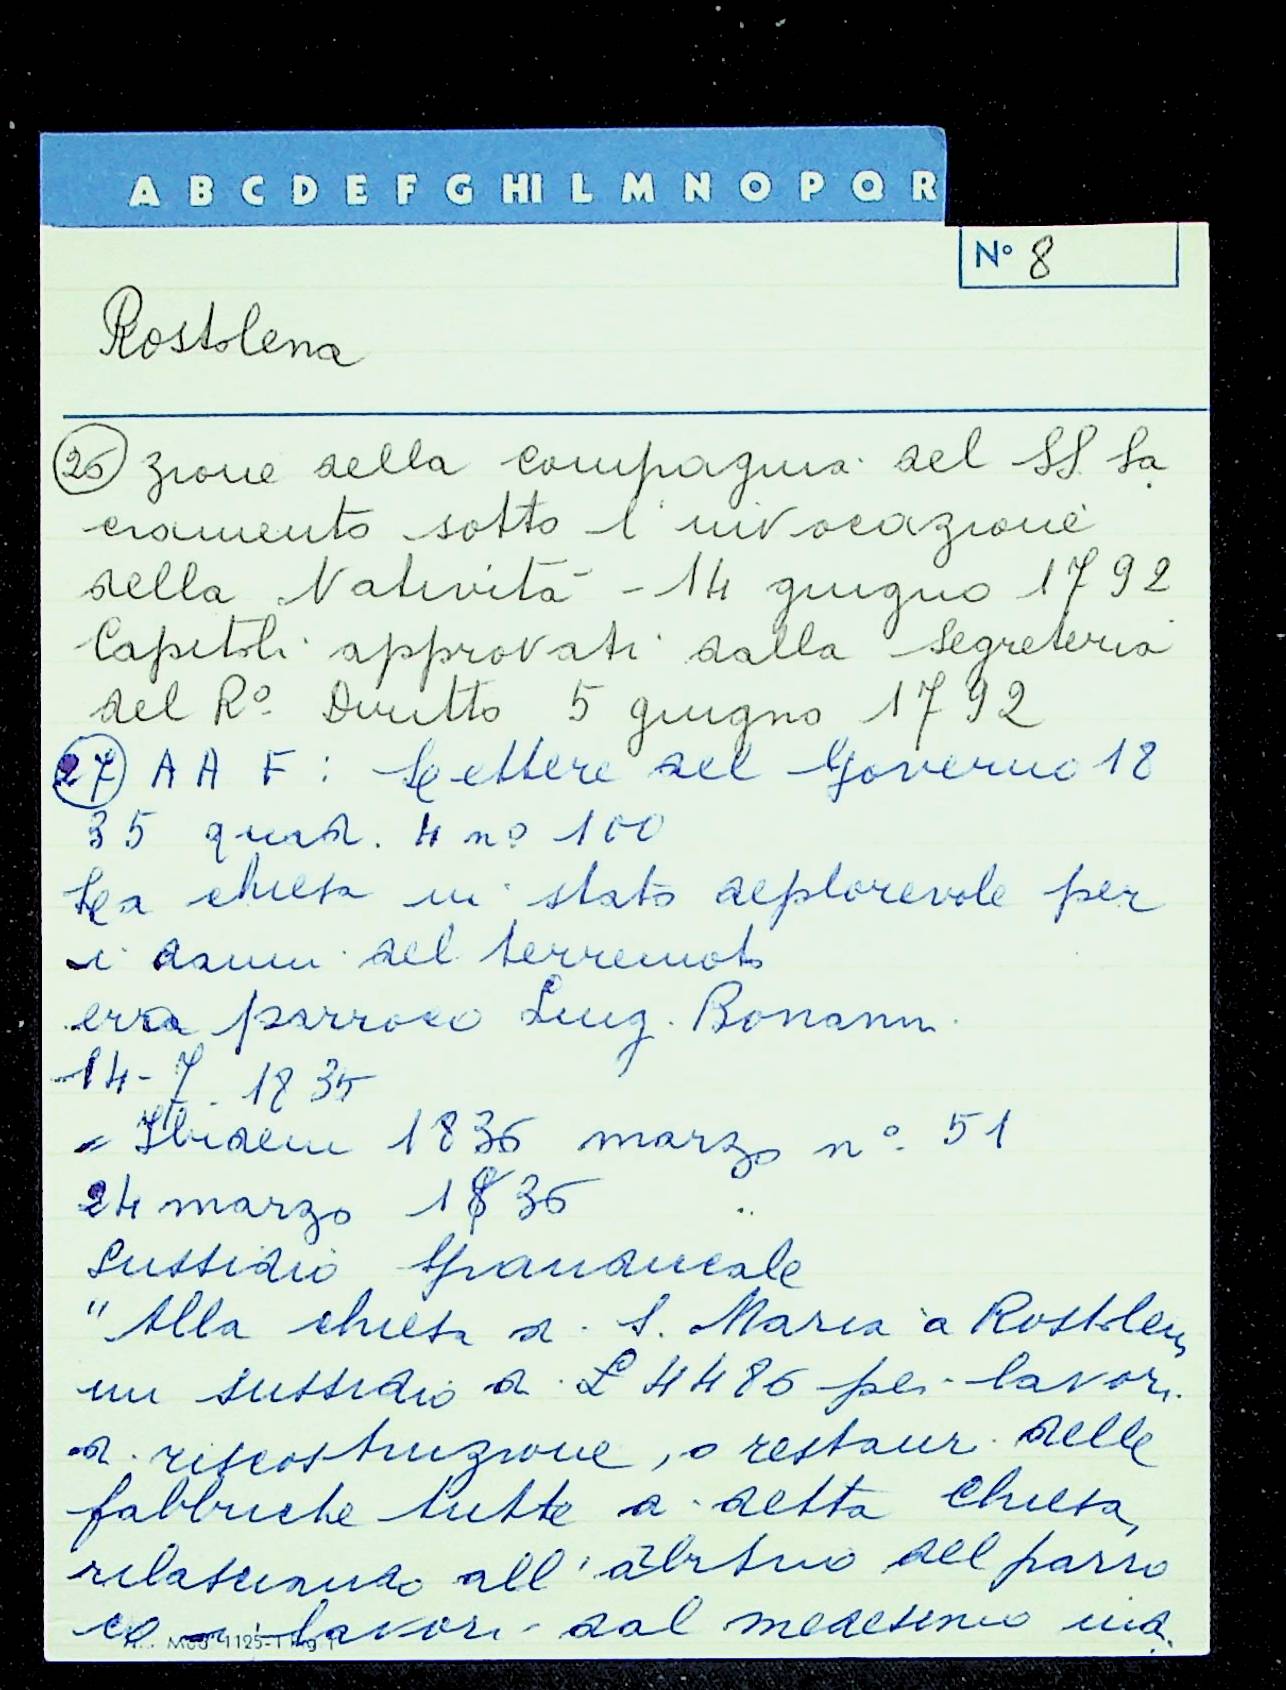 A B C D E F G HI L M N O P Q R
N° 8
Rostolena
26 zione della compagnia del SS Sa
cramento sotto l'invocazione
della Natività - 14 giugno 1792
Capitoli approvati dalla Segreteria
del R° Diritto 5 giugno 1792
27 A A F : Lettere del Governo 18
35 quad. 4 n° 100
La chiesa in stato deplorevole per
i danni del terremoto
erra parroco Luig. Bonanni
14-7-1835
= Ibidem 1836 marzo n° 51
24 marzo 1836
Sussidio Granducale
"Alla chiesa di S. Maria a Rostolen
un sussidio di £ 4486 per lavori
di riscostruzione, o restaur. delle
fabbriche tutte di detta chiesa,
rilasciando all'albitrio del parro
co i lavori dal medesimo ind.
Mod 1125-1